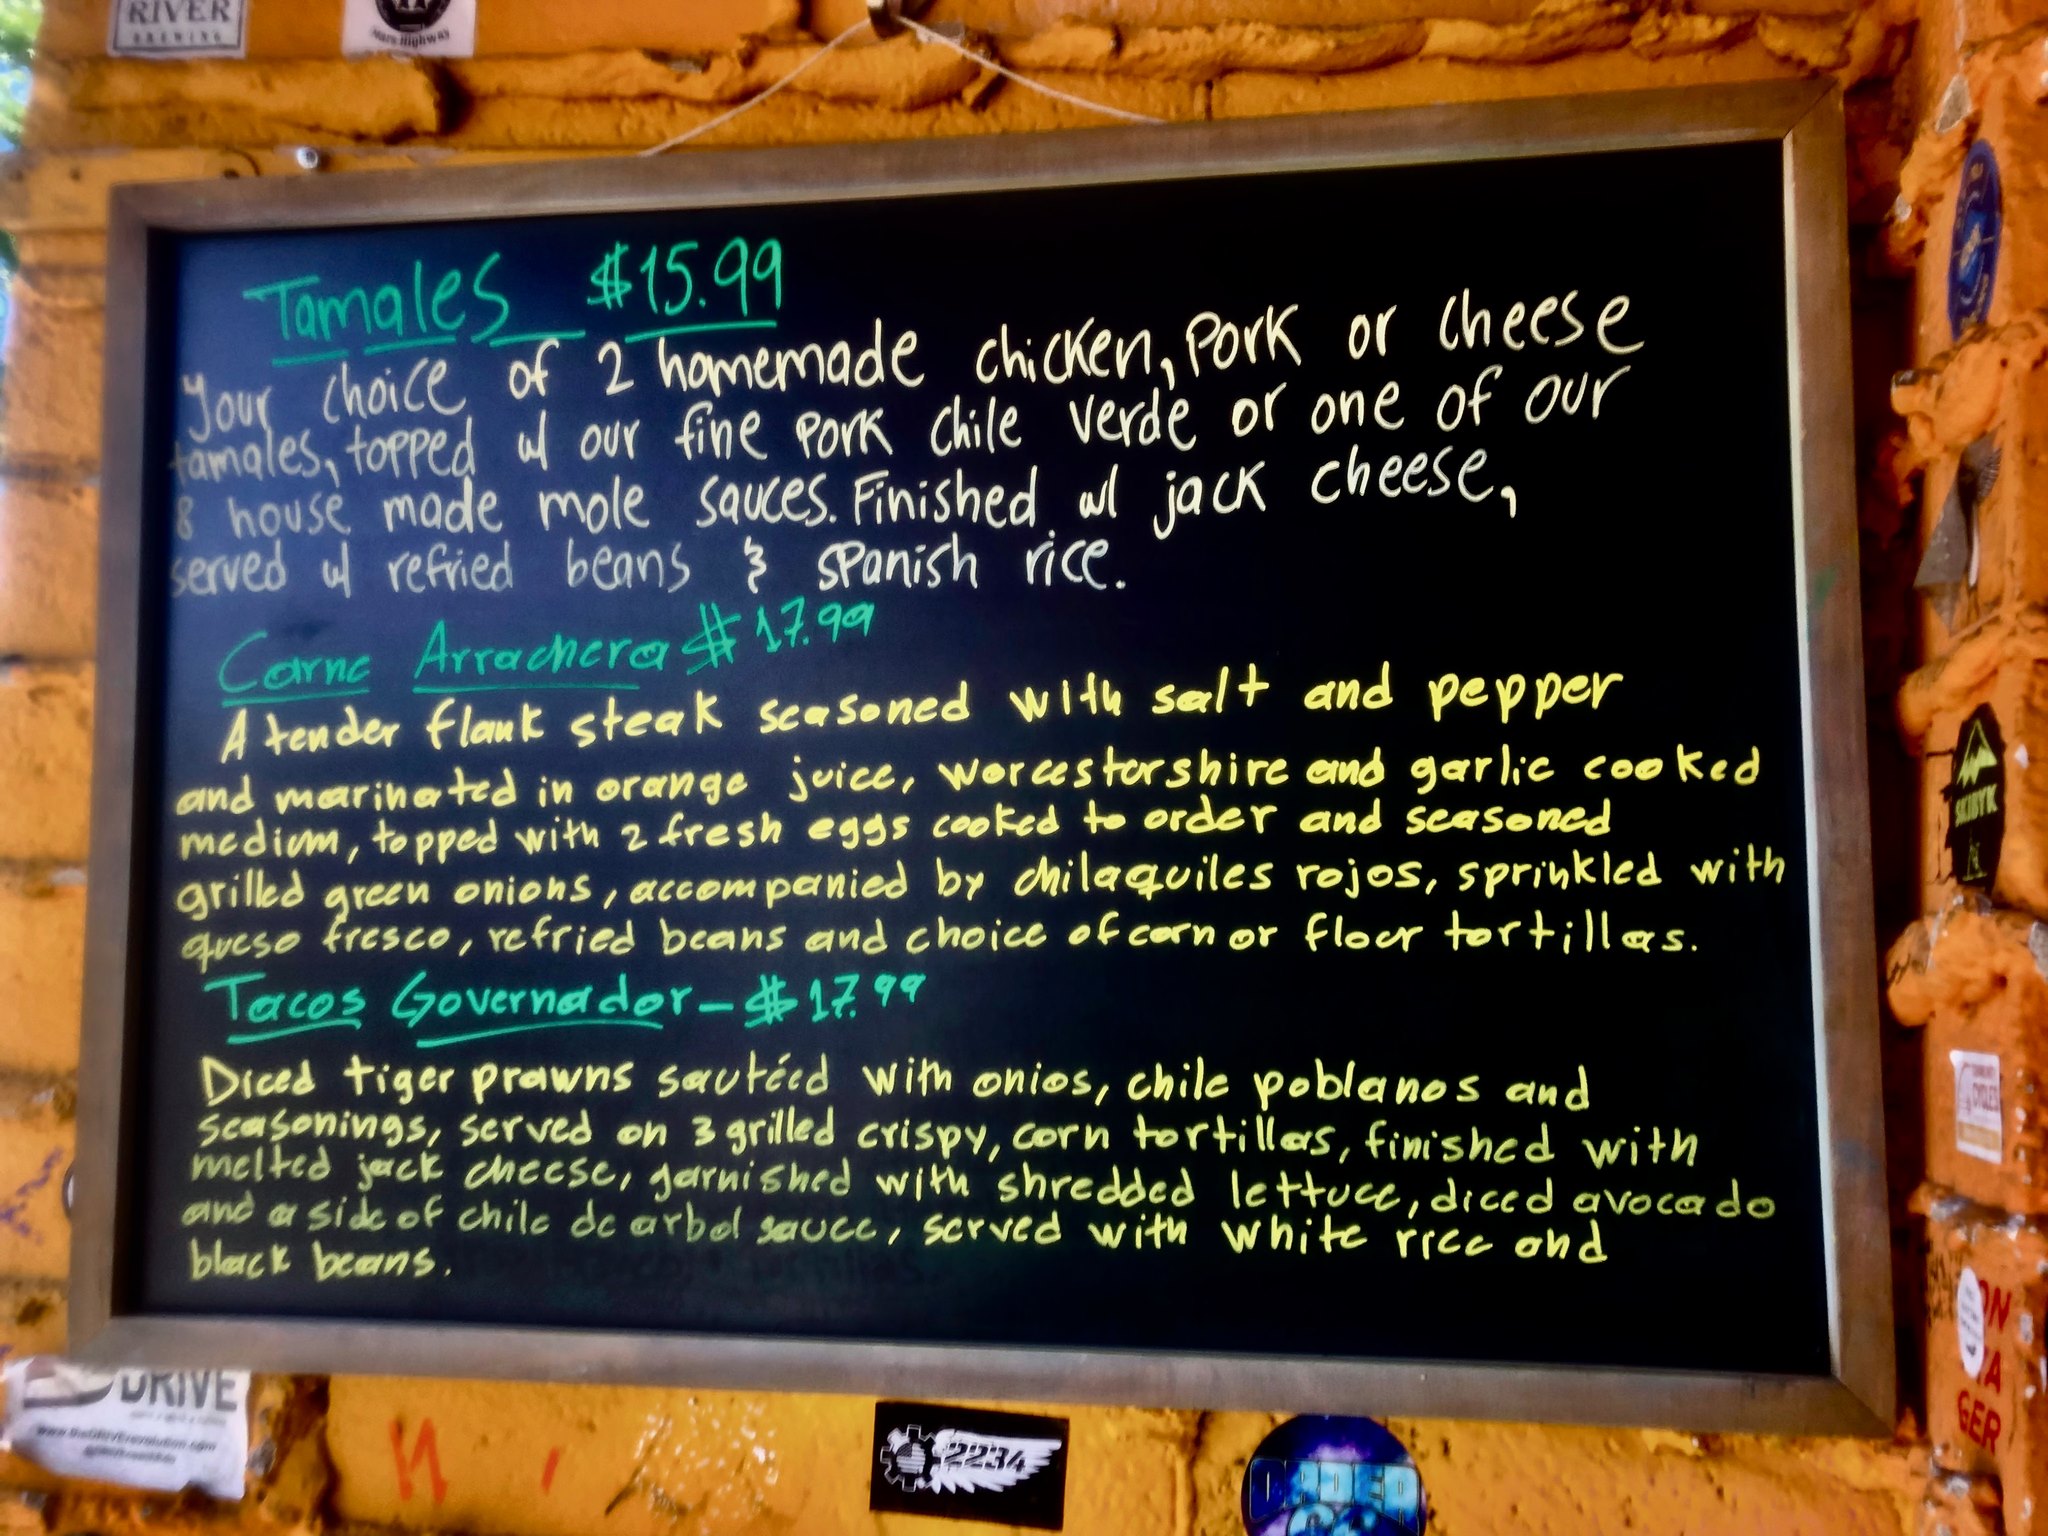 RIVER
BREWING
Mars Highway
Tamales $15.99
Your choice of 2 homemade chicken, pork or cheese
tamales, topped w/ our fine pork chile verde or one of our
8 house made mole sauces. Finished w/ jack cheese,
served w/ refried beans & spanish rice.
Carne Arrachera $17.99
A tender flank steak seasoned with salt and pepper
and marinated in orange juice, worcestorshire and garlic cooked
medium, topped with 2 fresh eggs cooked to order and seasoned
grilled green onions, accompanied by chilaquiles rojos, sprinkled with
queso fresco, refried beans and choice of corn or flour tortillas.
Tacos Governador - $17.99
Diced tiger prawns sautéed with onios, chile poblanos and
seasonings, served on 3 grilled crispy, corn tortillas, finished with
melted jack cheese, garnished with shredded lettuce, diced avocado
and a side of chile de arbol sauce, served with white rice and
black beans.
SKIBYK
CYCLES
DRIVE
2234
ORDER
GER